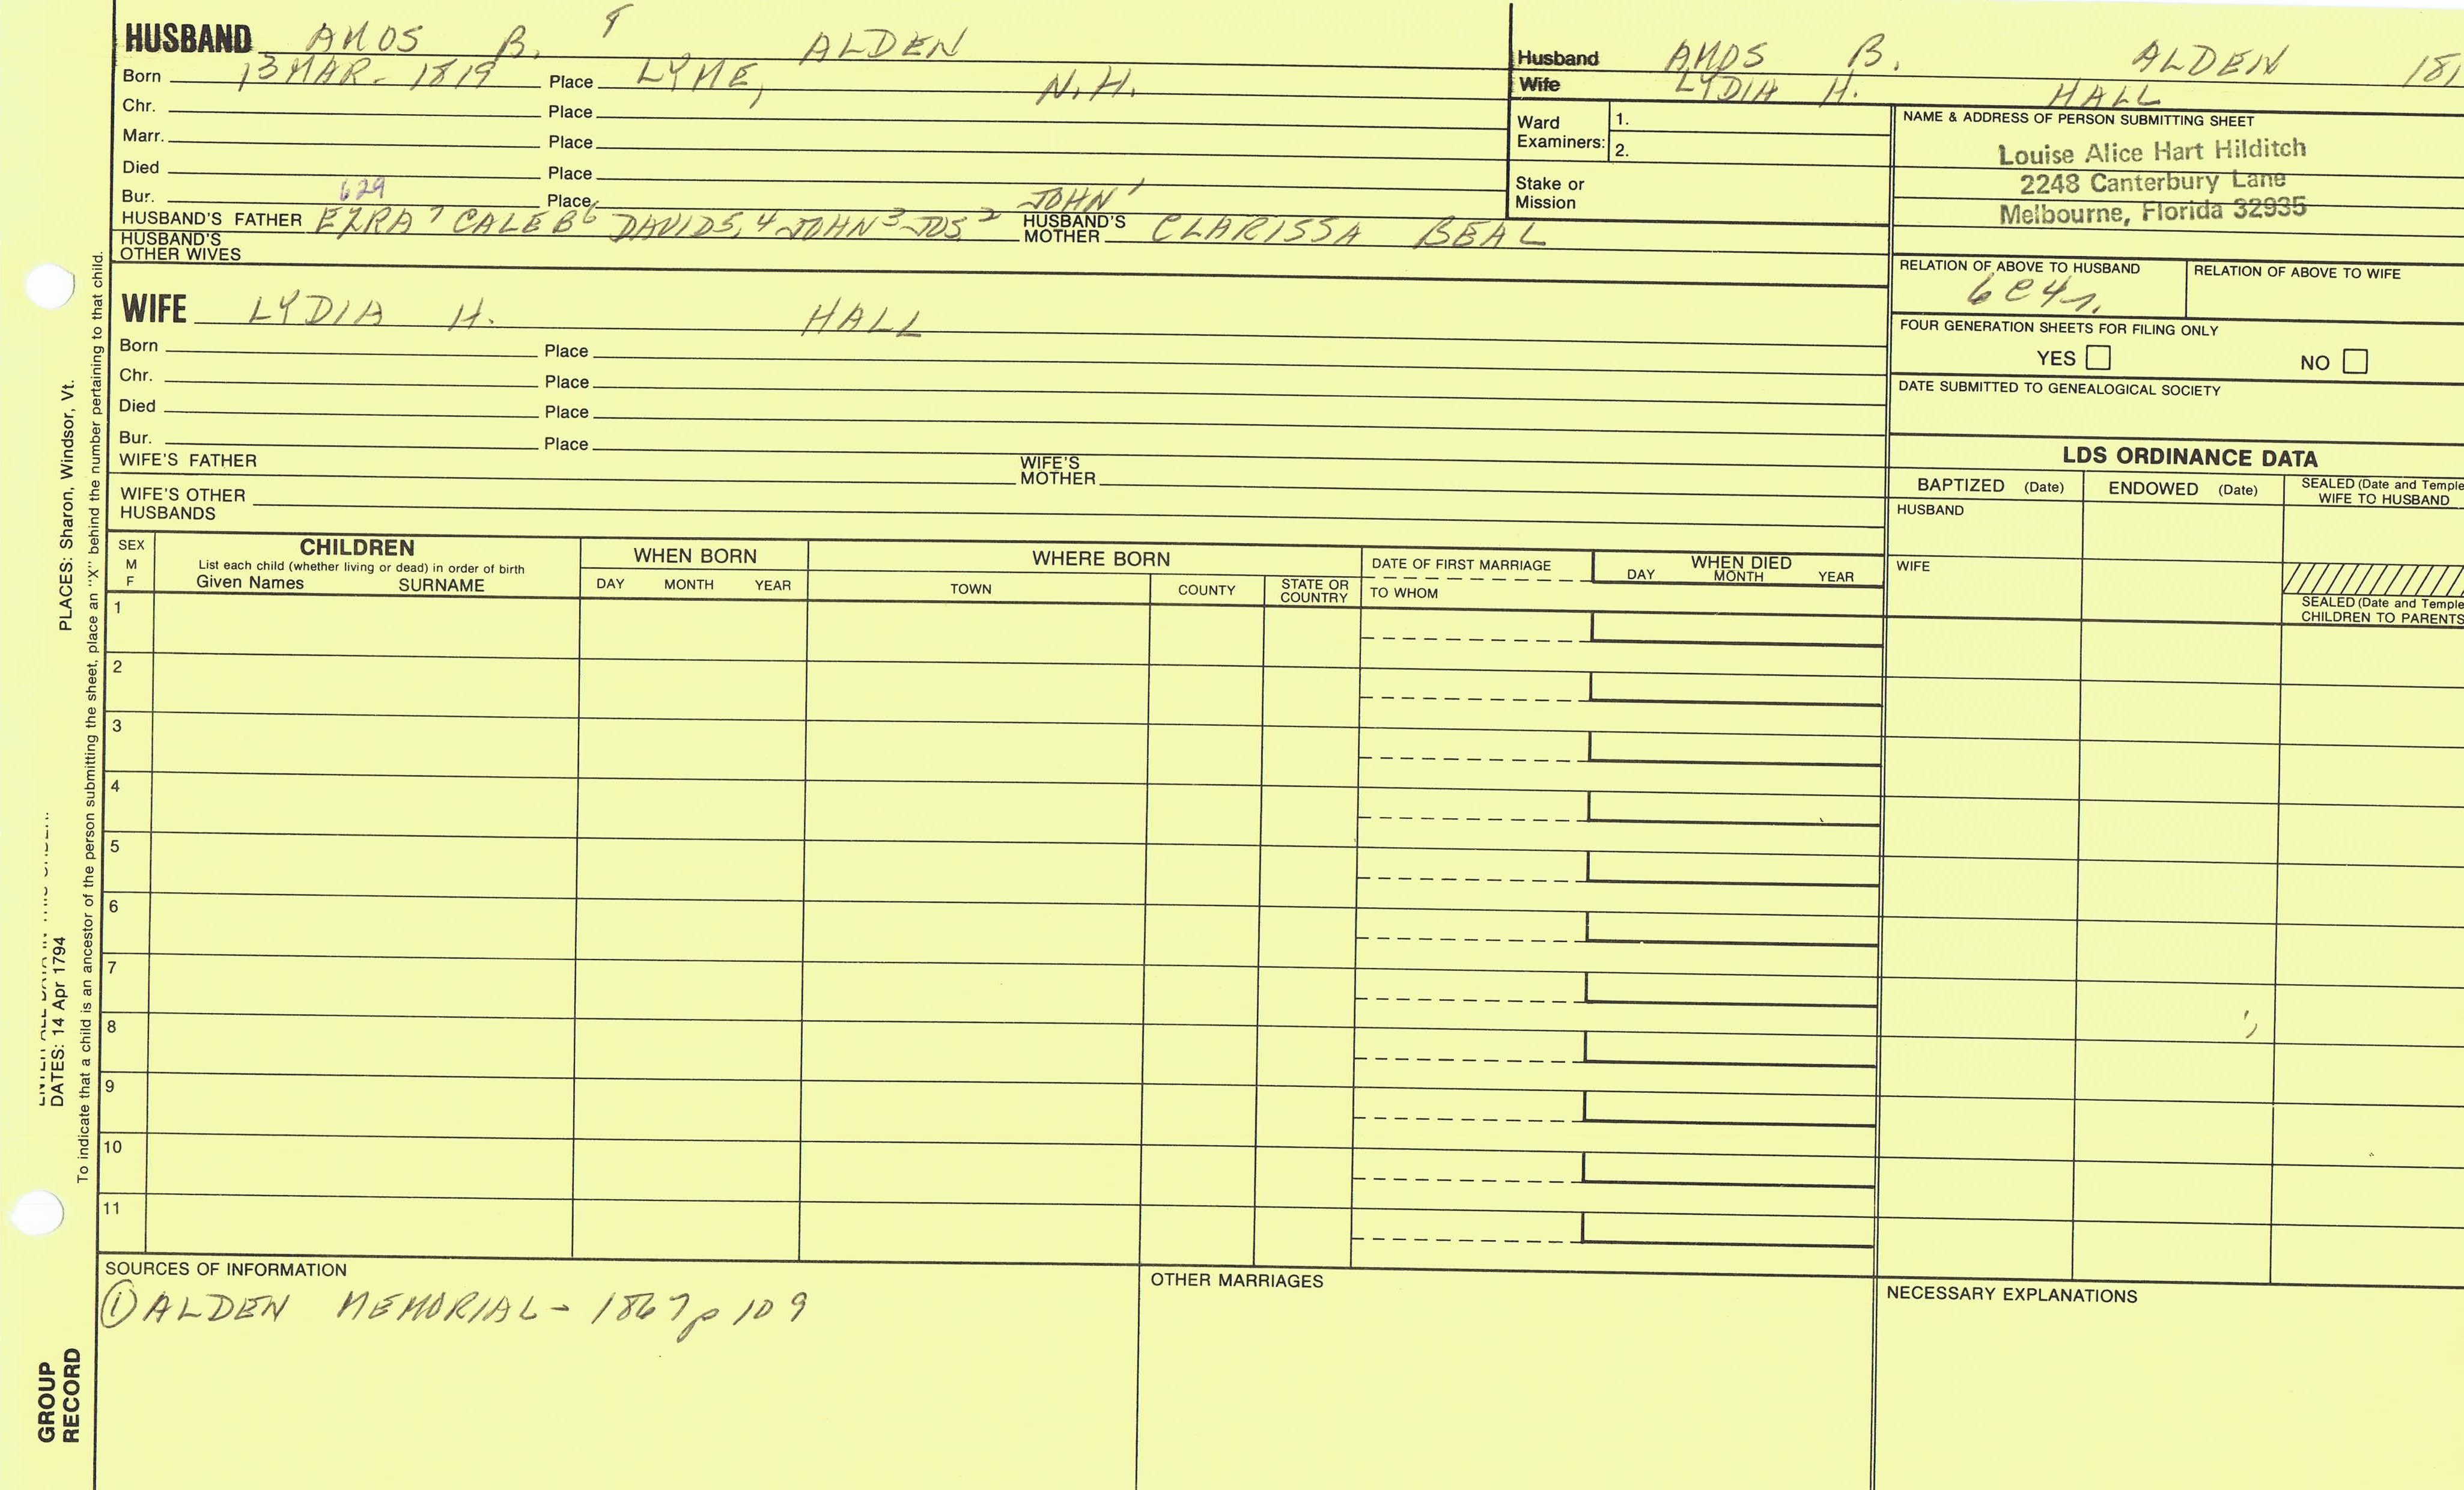 HUSBAND AMOS B. 8 ALDEN
Born 13 MAR- 1819 Place LYME, N.H.
Chr. Place
Marr. Place
Died Place
Bur. Place
629
JOHN 1
HUSBAND'S FATHER EZRA 7 CALEB 6 DAVID 5, 4 JOHN 3 JOS 2 HUSBAND'S MOTHER CLARISSA BEAL
HUSBAND'S OTHER WIVES
WIFE LYDIA H. HALL
Born Place
Chr. Place
Died Place
Bur. Place
WIFE'S FATHER WIFE'S MOTHER
WIFE'S OTHER HUSBANDS
Husband AMOS B. ALDEN 181
Wife LYDIA H. HALL
Ward Examiners: 1.
2.
Stake or Mission
NAME & ADDRESS OF PERSON SUBMITTING SHEET
Louise Alice Hart Hilditch
2248 Canterbury Lane
Melbourne, Florida 32935
RELATION OF ABOVE TO HUSBAND RELATION OF ABOVE TO WIFE
6C4r.
FOUR GENERATION SHEETS FOR FILING ONLY
YES NO
DATE SUBMITTED TO GENEALOGICAL SOCIETY
LDS ORDINANCE DATA
BAPTIZED (Date) ENDOWED (Date) SEALED (Date and Temple
WIFE TO HUSBAND
HUSBAND
WIFE
SEALED (Date and Temple
CHILDREN TO PARENTS
SEX
M
F
CHILDREN
List each child (whether living or dead) in order of birth
Given Names SURNAME
WHEN BORN
DAY MONTH YEAR
WHERE BORN
TOWN COUNTY STATE OR COUNTRY
DATE OF FIRST MARRIAGE
TO WHOM
WHEN DIED
DAY MONTH YEAR
1
2
3
4
5
6
7
8
9
10
11
SOURCES OF INFORMATION
① ALDEN MEMORIAL - 1867 p 109
OTHER MARRIAGES
NECESSARY EXPLANATIONS
PLACES: Sharon, Windsor, Vt.
DATES: 14 Apr 1794
To indicate that a child is an ancestor of the person submitting the sheet, place an "X" behind the number pertaining to that child.
GROUP
RECORD